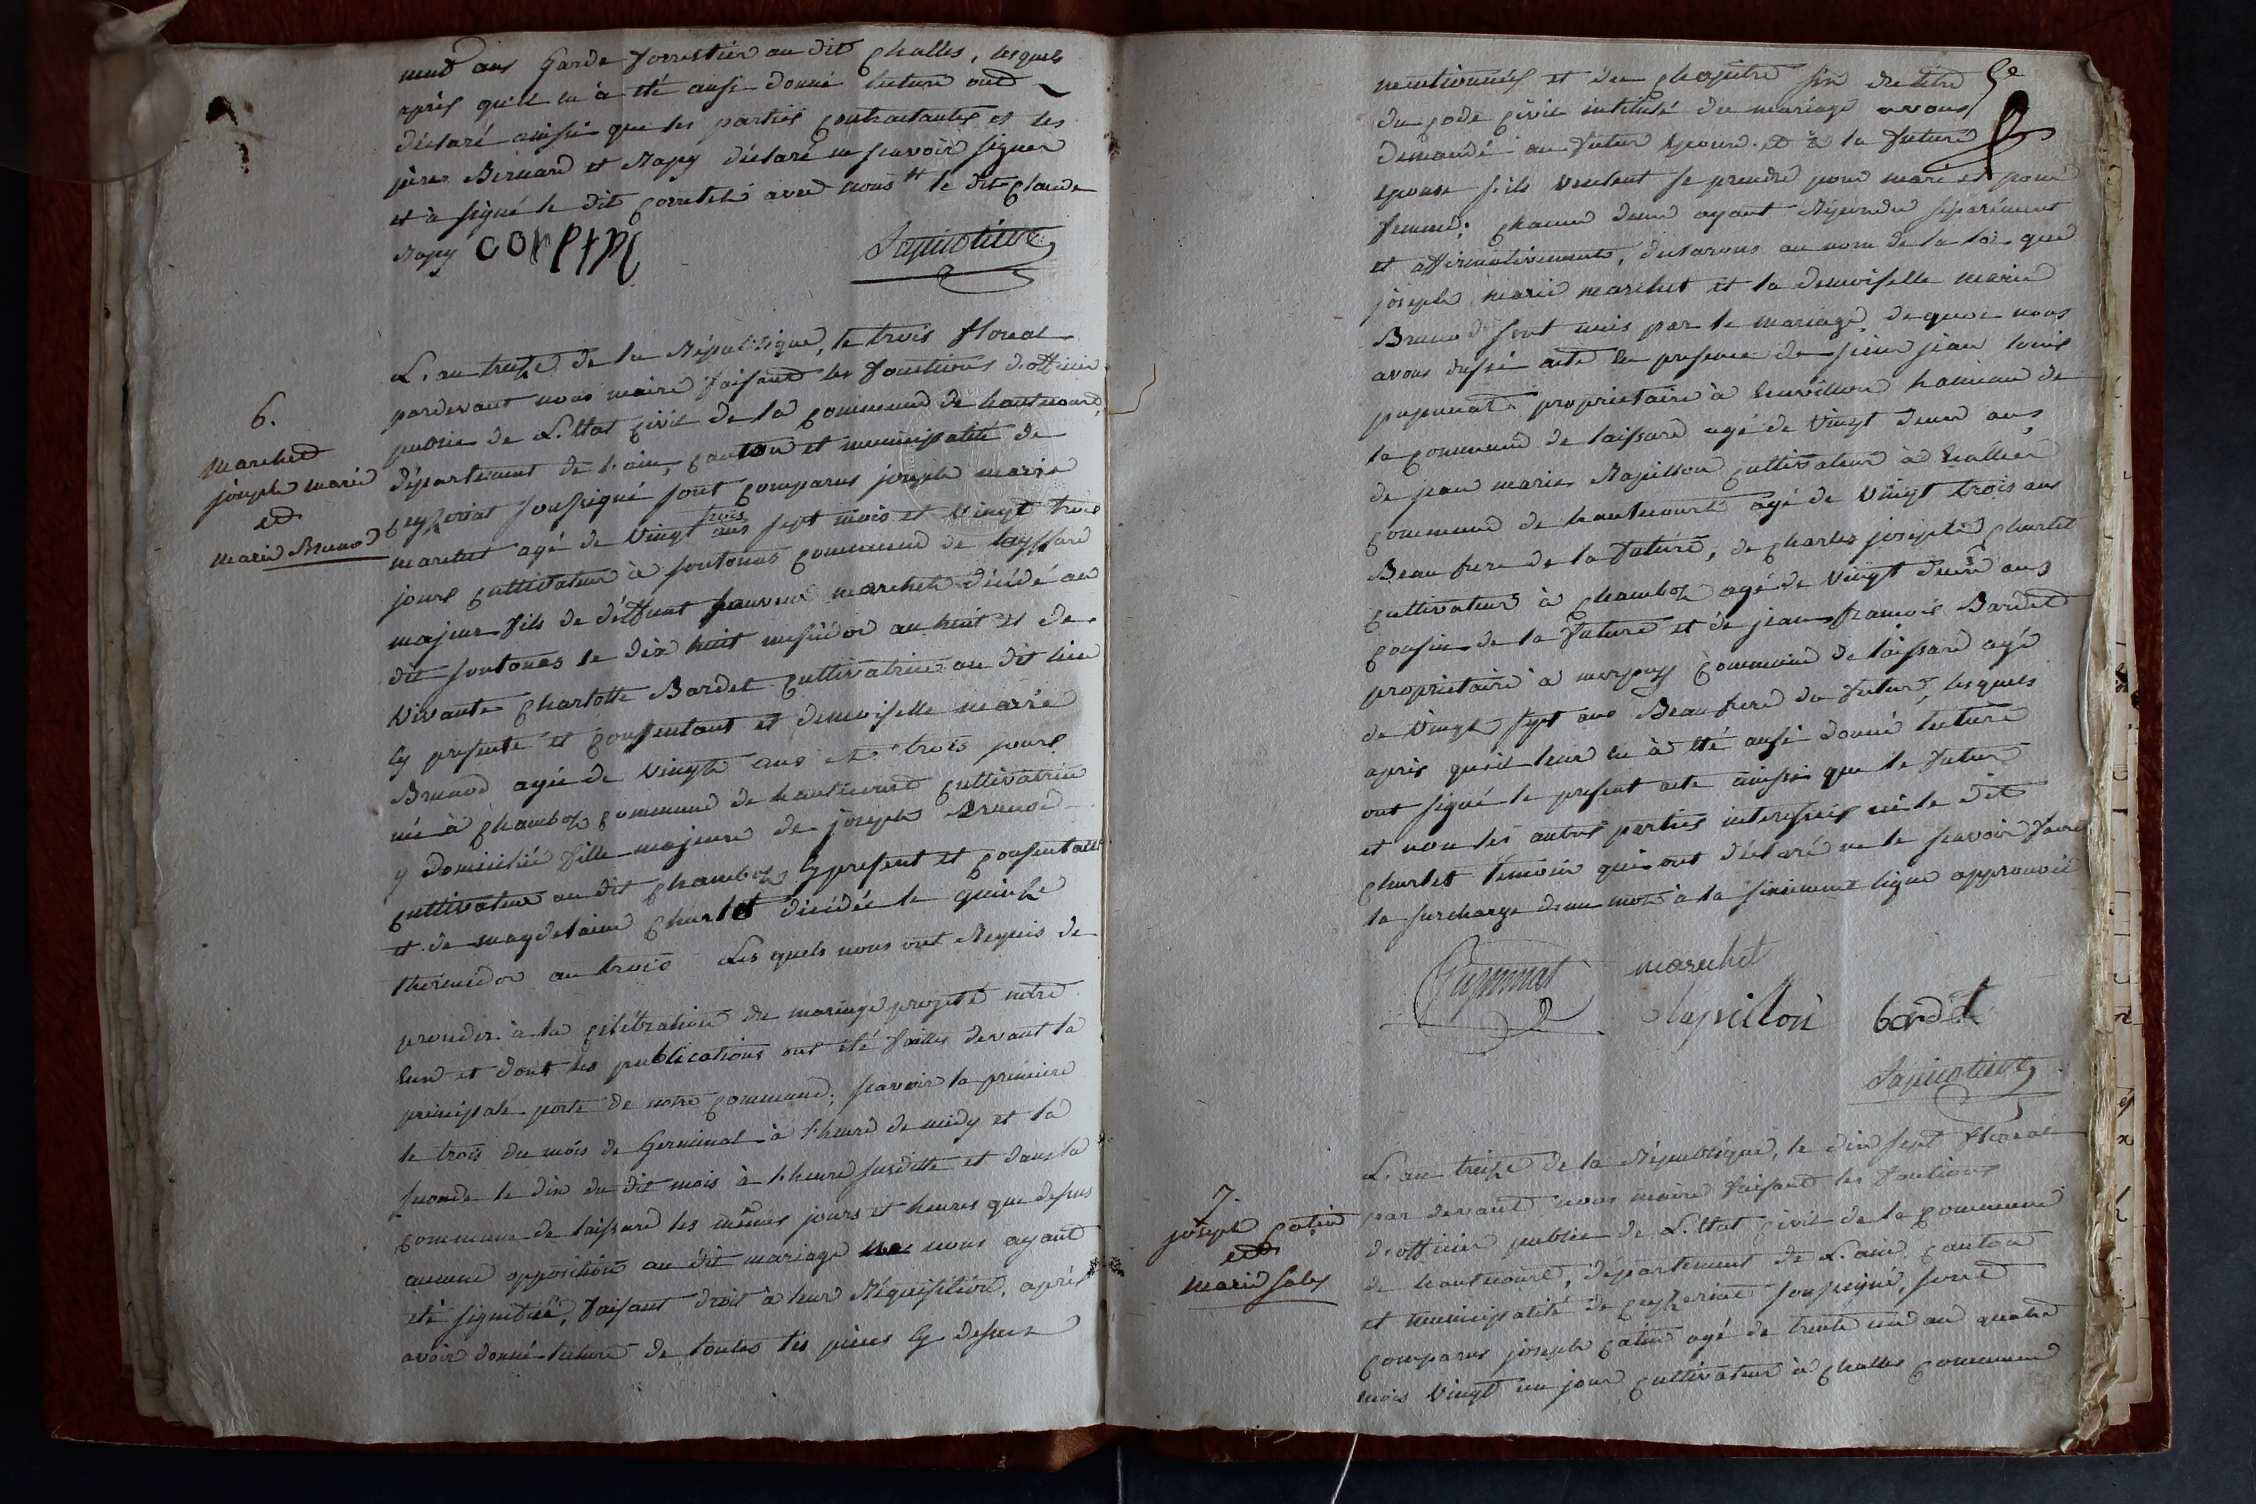 neuf ans Garde forrestier au dit Challes, lesquels
après qu'il en a été aussi donné lecture ont
déclaré ainsi que les parties contractantes et les
pères Bernard et Rapy déclaré ne scavoir signer
et à signé le dit Corretel avec nous le dit Claude
Rapy
6.
Marchet
joseph marie
et
marie Brunod
L'an treize de la République, le trois floreal
pardevant nous maire faisant les fonctions d'officier
public de L'Etat Civil de la Commune de hautecourt,
département de l'ain, canton et municipalité de
Ceyzeriat soussigné sont comparus joseph marie
marchet agé de Vingt trois ans sept mois et Vingt trois
jours cultivateur à soutonas commune de layssard
majeur fils de déffunt marchet décédé au
dit soutonas le dix huit messidor an huit et de
Vivante Charlotte Bardet Cultivatrice au dit lieu
Cy présente et Consentant et demoiselle marie
Brunod agée de Vingt ans et trois jours
née à Chamboz Commune de hautecourt cultivatrice
y domiciliée fille majeure de joseph Brunod
Cultivateur au dit Chamboz Cy present et Consentant
et de magdelaine Churlet décédée le quinze
thermidor an trois Les quels nous ont Requis de
proceder à la Célébration du mariage projeté entre
Eux et dont les publications ont été faittes devant la
principale porte de notre Commune; scavoir la premiere
le trois du mois de Germinal à l'heure de midy et la
seconde le dix du dit mois à l'heure susditte et dans la
Commune de laissard les mêmes jours et heures que dessus
aucune opposition au dit mariage ne nous ayant
été signiffiée, faisant droit à leur Réquisition, après
avoir donné lecture de toutes les pièces Cy dessus
mentionnées et du Chapitre six du titre
du Code Civil intitulé du mariage avons
demandé au futur Epoux et à la future
epouse s'ils Veulent se prendre pour mari et pour
femme; Chacun deux ayant Répondu séparément
et affirmativement, déclarons au nom de la loi que
joseph marie marchet et la demoiselle marie
Brunod sont unis par le mariage, de quoi nous
avons dressé acte en presence de sieur jean louis
pupunat proprietaire à hameau de
la Commune de laissard agé de Vingt deux ans
de jean marie Rapillon Cultivateur à
Commune de hautecourt agé de Vingt trois ans
Beau frere de la future, de Charles joseph Churlet
Cultivateur à Chamboz agé de Vingt deux ans
Cousin de la future et de jean francois Bardet
proprietaire à Commune de laissard agé
de Vingt sept ans Beau frere du futur, lesquels
après qu'il leur en à été aussi donné lecture
ont signé le present acte ainsi que le futur
et non les autres parties interessées ni le dit
Churlet témoin qui ont déclaré ne le scavoir faire
la surcharge d'un mot à la sixieme ligne approuvée
Pupunat marchet
Rapillon bardet
7.
joseph Catin
et
marie
L'an treize de la République, le dix sept floreal
par devant nous maire faisant les fonctions
d'officier public de L'Etat Civil de la Commune
de hautecourt, département de L'ain, Canton
et municipalité de Ceyzeriat soussigné, sont
Comparus joseph Catin agé de trente un an quatre
mois Vingt un jour Cultivateur à Challes Commune